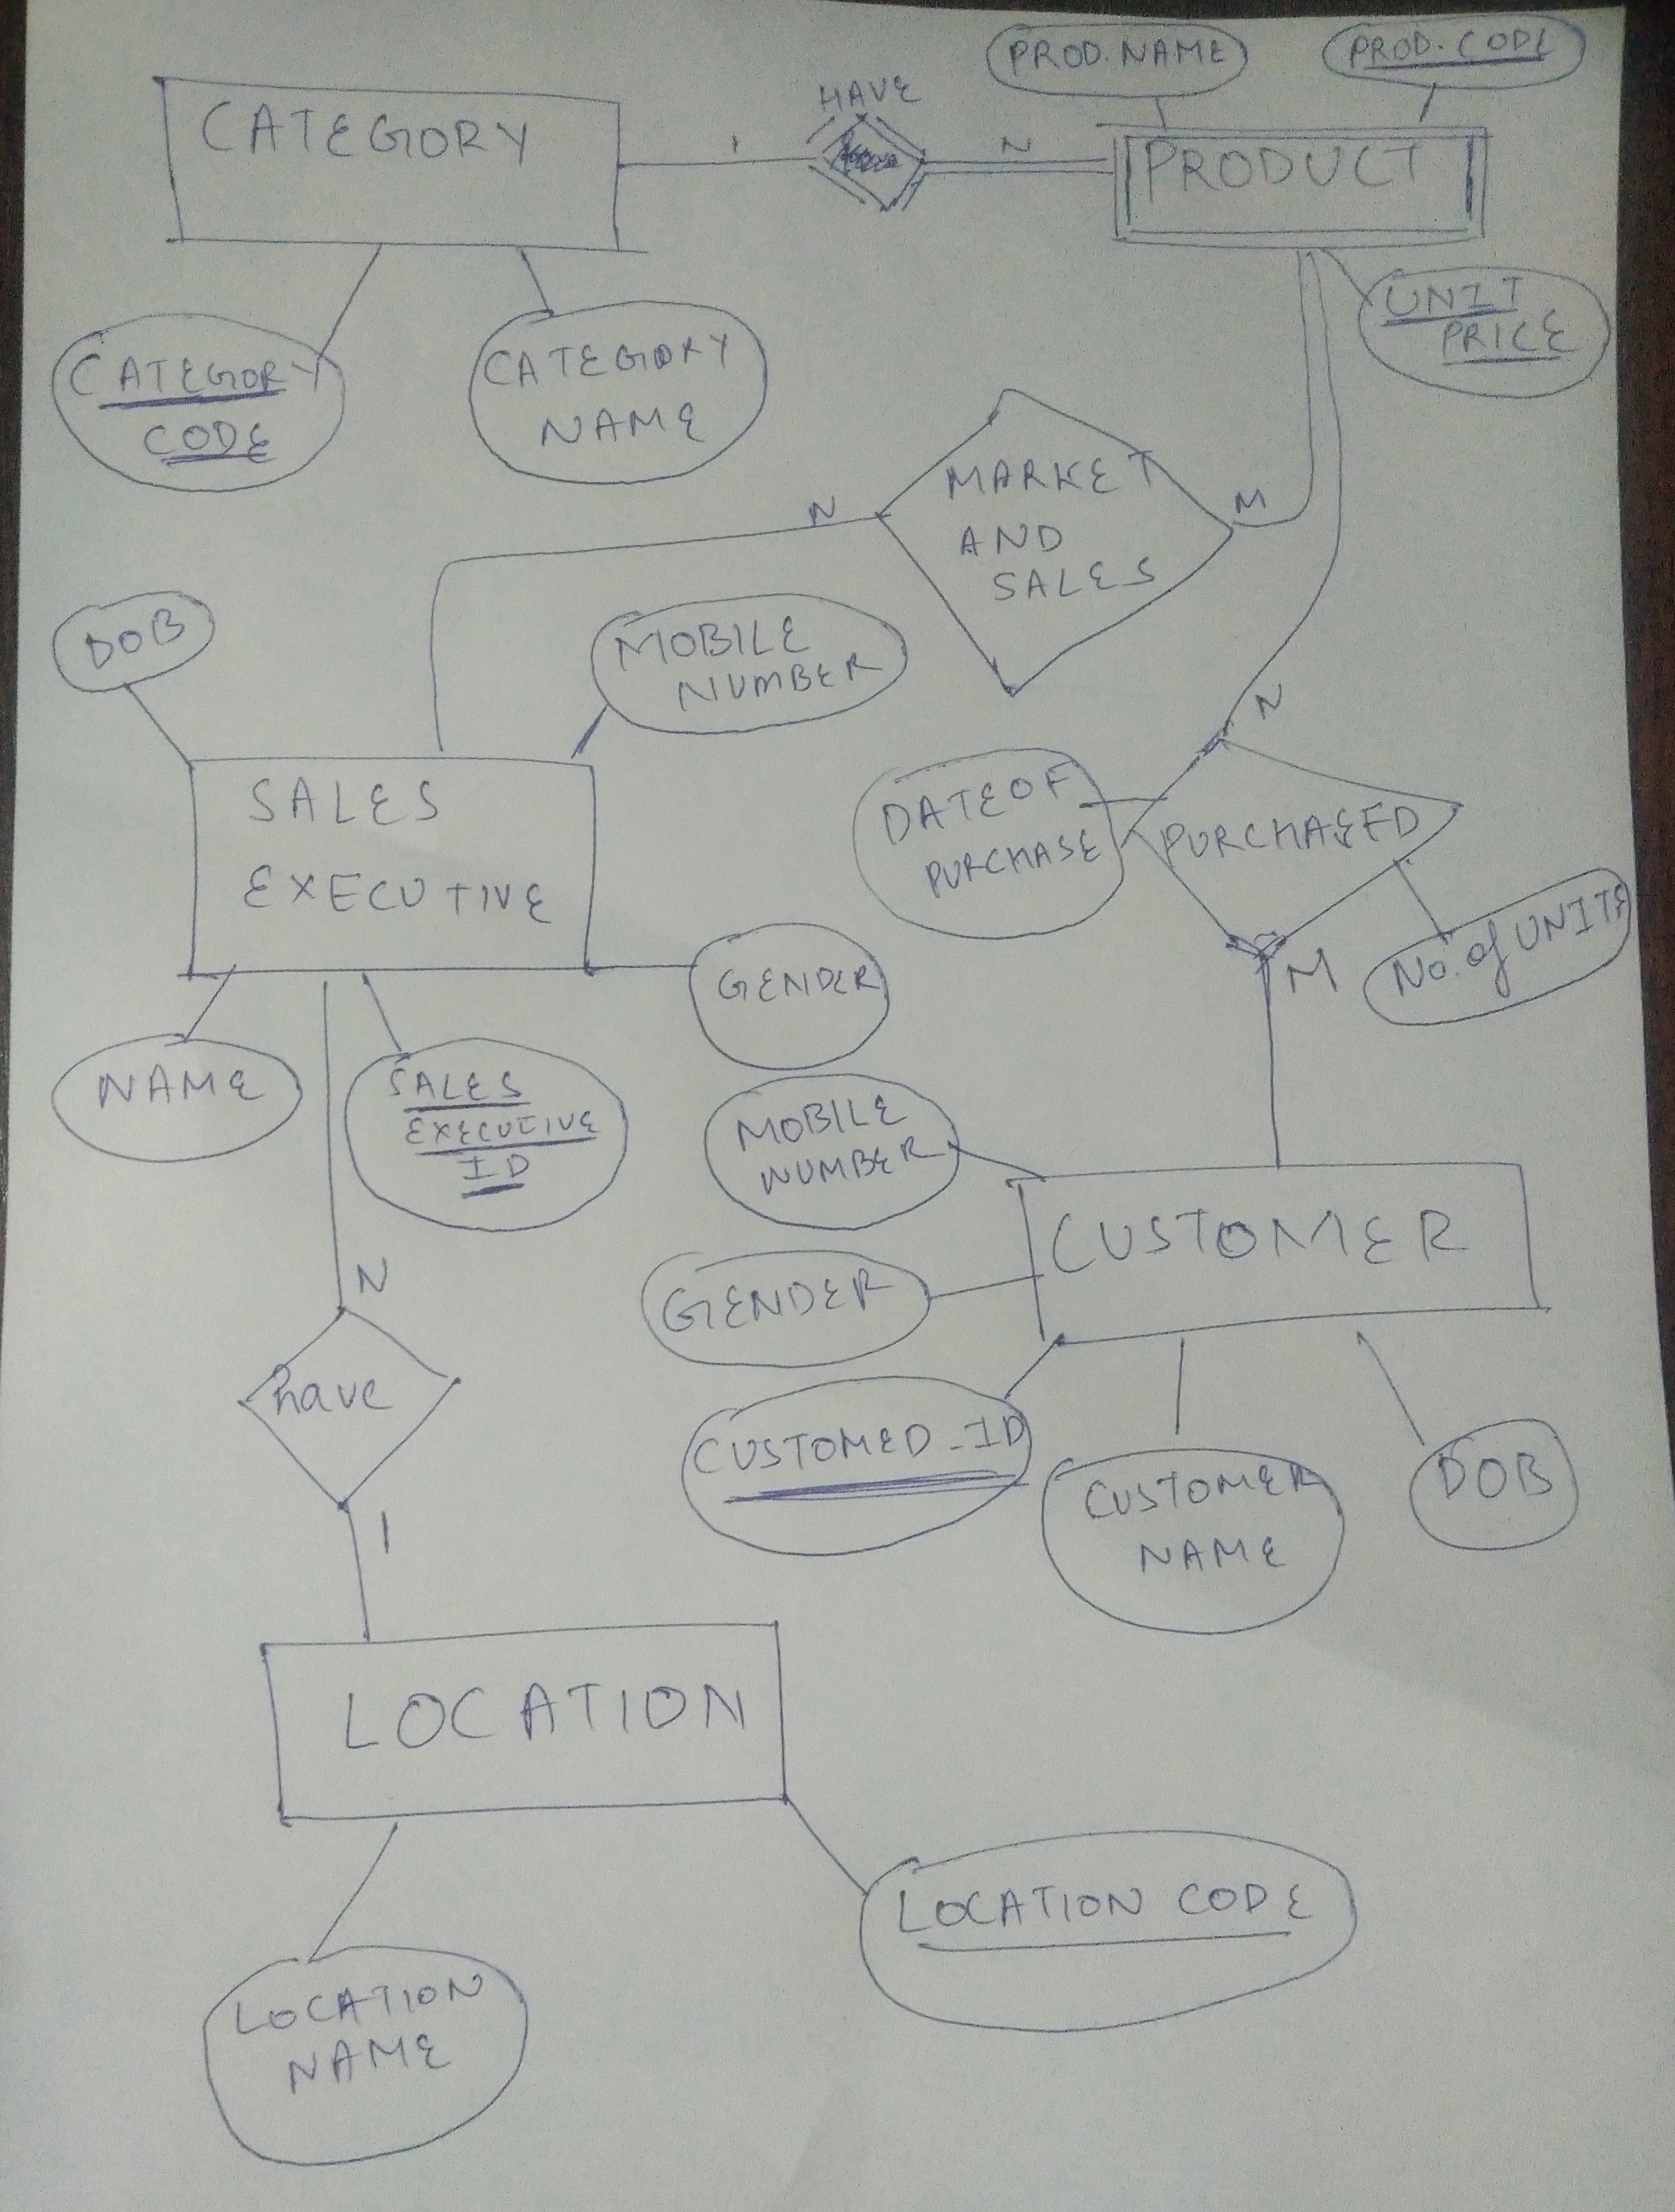 PROD. NAME
PROD. CODE
HAVE
CATEGORY
1
N
PRODUCT
UNIT
PRICE
CATEGORY
CODE
CATEGORY
NAME
MARKET
AND
SALES
N
M
DOB
MOBILE
NUMBER
N
SALES
EXECUTIVE
DATE OF
PURCHASE
PURCHASED
No. of UNITS
M
GENDER
NAME
SALES
EXECUTIVE
ID
MOBILE
NUMBER
CUSTOMER
GENDER
N
have
1
CUSTOMED_ID
CUSTOMER
NAME
DOB
LOCATION
LOCATION CODE
LOCATION
NAME